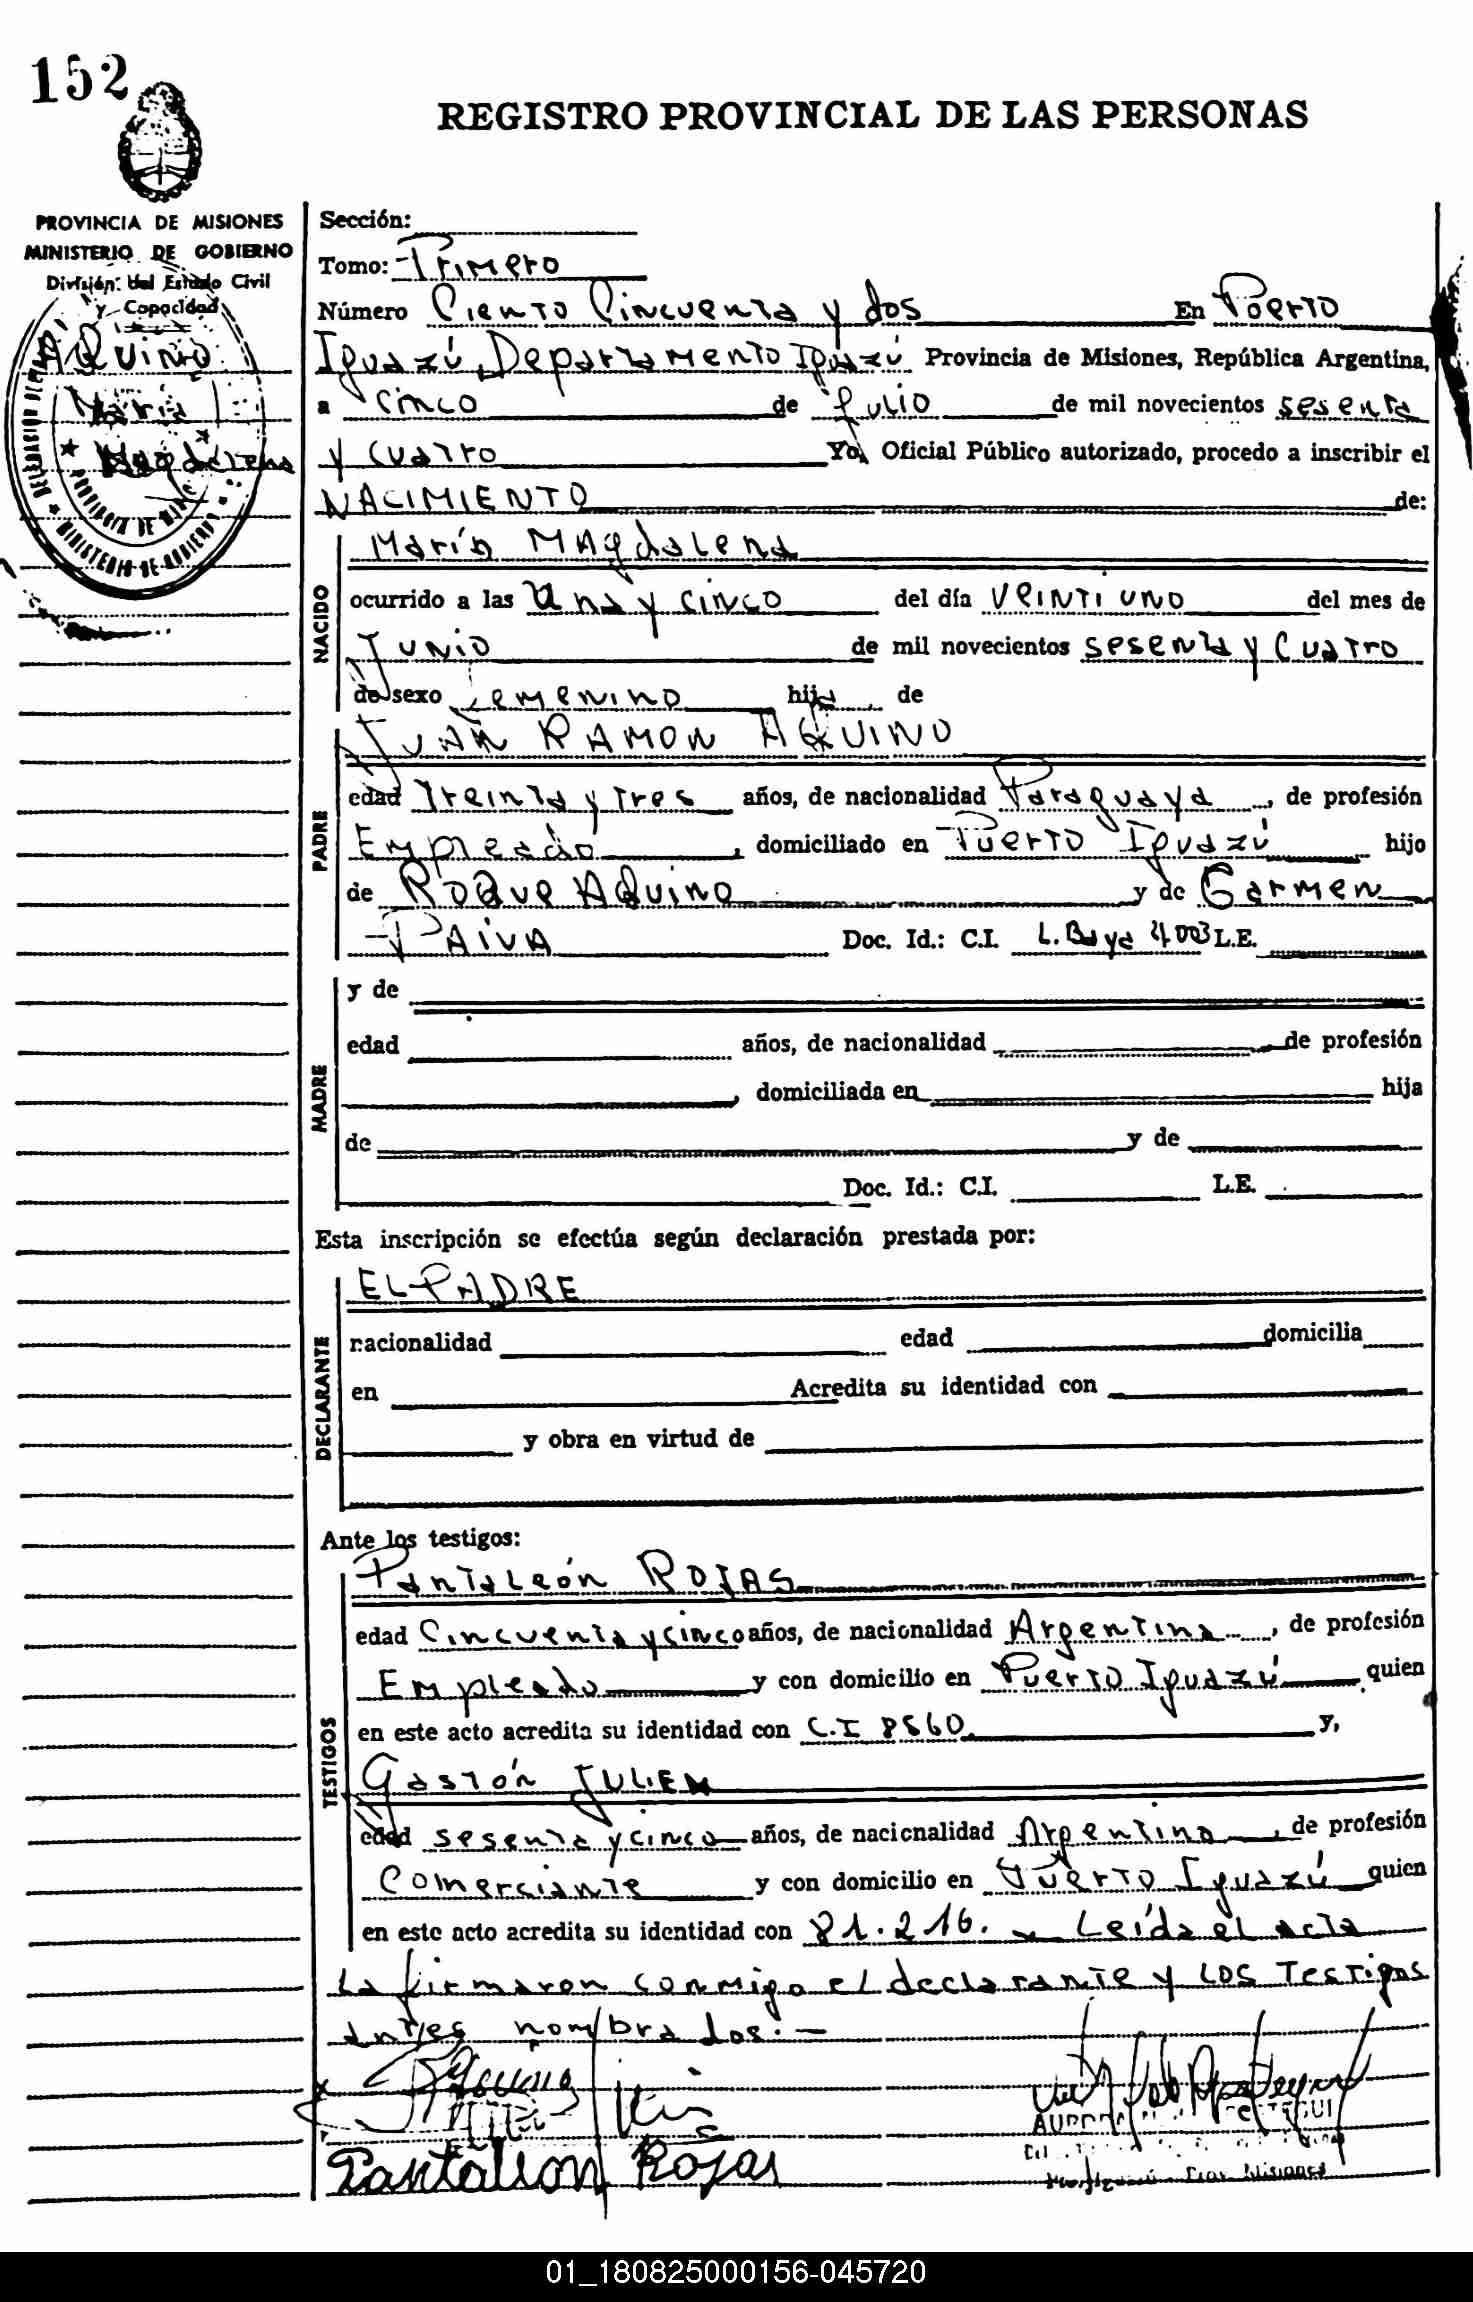 152
REGISTRO PROVINCIAL DE LAS PERSONAS
PROVINCIA DE MISIONES
MINISTERIO DE GOBIERNO
División del Estado Civil
y Capacidad
Aquino
María
Magdalena
Sección:
Tomo: Primero
Número Ciento Cincuenta y dos En Puerto
Iguazú, Departamento Iguazú Provincia de Misiones, República Argentina,
a cinco de Julio de mil novecientos sesenta
y cuatro Yo, Oficial Público autorizado, procedo a inscribir el
NACIMIENTO de:
NACIDO
María MAgdalena
ocurrido a las Una y cinco del día veintiuno del mes de
Junio de mil novecientos sesenta y Cuatro
de sexo Femenino hija de
PADRE
JUAN RAMON AQUINO
edad treinta y tres años, de nacionalidad Paraguaya, de profesión
Empleado, domiciliado en Puerto Iguazú hijo
de Roque Aquino y de Carmen
PAIVA Doc. Id.: C.I. L. Baya 4003 L.E.
MADRE
y de
edad años, de nacionalidad de profesión
, domiciliada en hija
de y de
Doc. Id.: C.I. L.E.
Esta inscripción se efectúa según declaración prestada por:
DECLARANTE
EL PADRE
nacionalidad edad domicilia
en Acredita su identidad con
y obra en virtud de
Ante los testigos:
TESTIGOS
Pantaleón ROJAS
edad Cincuenta y cinco años, de nacionalidad Argentina, de profesión
Empleado y con domicilio en Puerto Iguazú quien
en este acto acredita su identidad con C.I 8560 y,
Gastón JULIEN
edad sesenta y cinco años, de nacionalidad Argentina, de profesión
Comerciante y con domicilio en Puerto Iguazú quien
en este acto acredita su identidad con 81.216. Leída el acta
La firmaron conmigo el declarante y los Testigos
antes nombrados.-
Pantalion Rojas
01_180825000156-045720